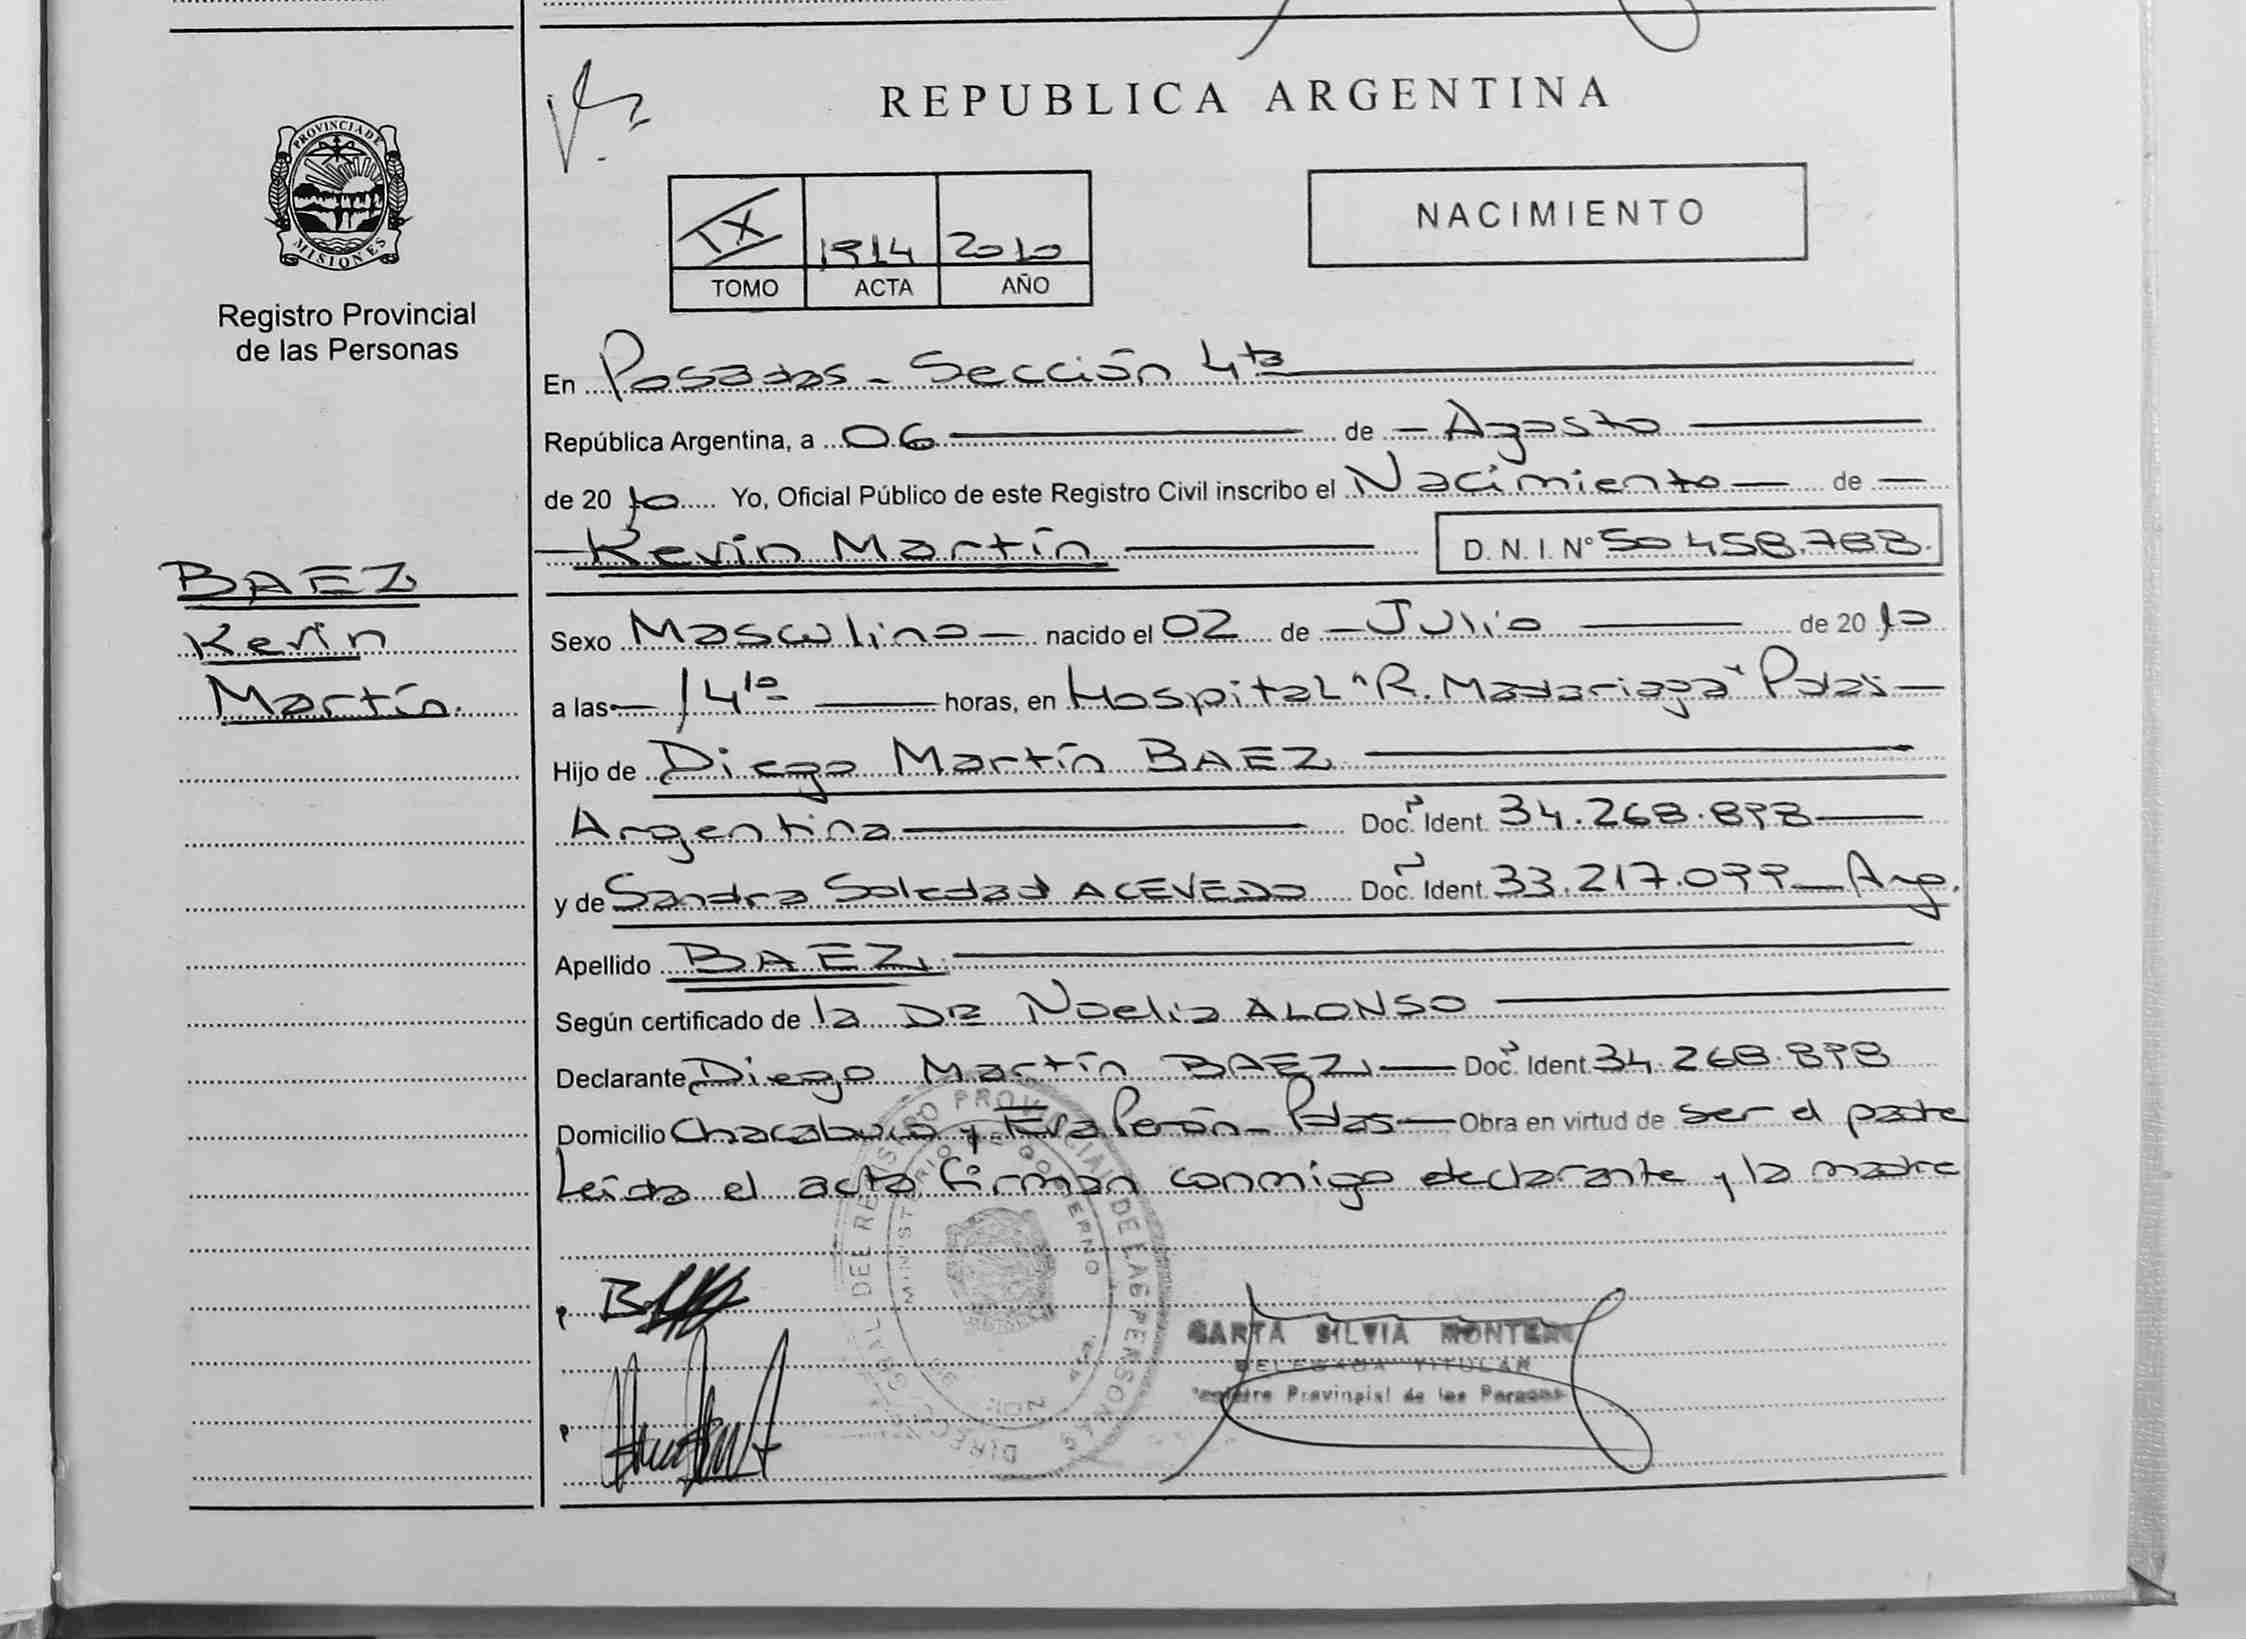 REPUBLICA ARGENTINA
PROVINCIA DE
MISIONES
Registro Provincial
de las Personas
IX 1914 2010
TOMO ACTA AÑO
NACIMIENTO
En Posadas - Sección 4ta
República Argentina, a 06 de Agosto
de 2010 Yo, Oficial Público de este Registro Civil inscribo el Nacimiento de
Kevin Martín D.N.I. Nº 50.458.788.
BAEZ
Kevin
Martín.
Sexo Masculino nacido el 02 de Julio de 2010
a las 14 10 horas, en Hospital "R. Madariaga" Pdas
Hijo de Diego Martín BAEZ
Argentina Doc. Ident. 34.268.898
y de Sandra Soledad ACEVEDO Doc. Ident. 33.217.099 Arg.
Apellido BAEZ
Según certificado de la DRa Noelia ALONSO
Declarante Diego Martín BAEZ Doc. Ident. 34.268.898
Domicilio Chacabuco y Eva Perón - Pdas Obra en virtud de ser el padre
Leída el acta firman conmigo declarante y la madre
DIRECC. GRAL. DE REGISTRO PROVINCIAL DE LAS PERSONAS
MINISTERIO DE GOBIERNO
SILVIA MONTERO
DELEGADA TITULAR
Registro Provincial de las Personas